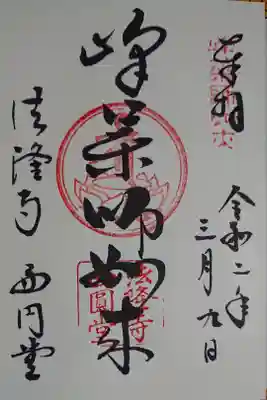 奉拝
令和二年
三月九日
峰薬師如来
法隆寺 西円堂
法隆寺
西圓堂